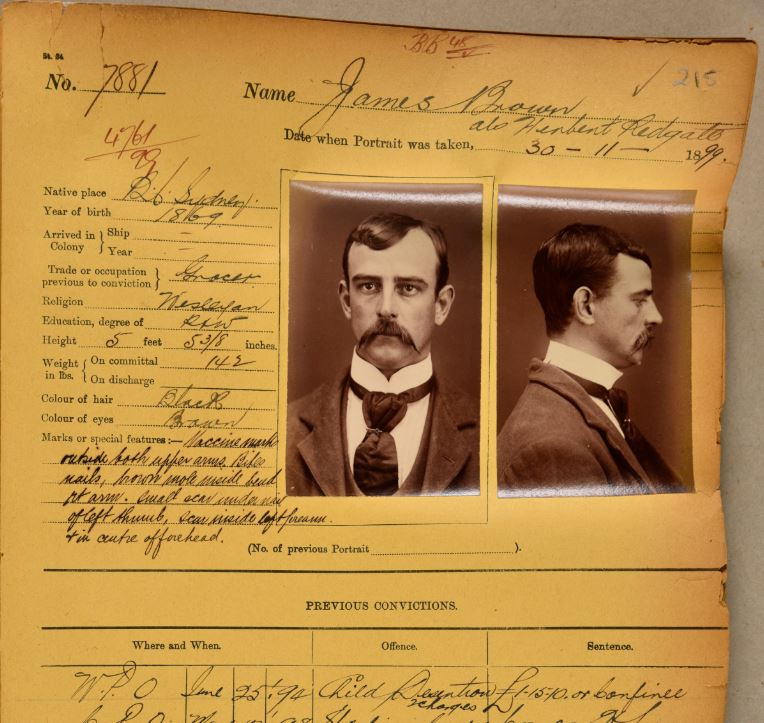 54. 34
BB 45/V
215
No. 7881
Name James Brown
als Herbert Redgate
4761/99
Date when Portrait was taken, 30 – 11 – 1899.
Native place Sydney.
Year of birth 1869
Arrived in Colony } Ship –
Year –
Trade or occupation previous to conviction } Grocer
Religion Wesleyan
Education, degree of R & W
Height 5 feet 5 3/8 inches.
Weight in lbs. { On committal 142
On discharge
Colour of hair Black
Colour of eyes Brown
Marks or special features:— Vaccine mark
outside both upper arms. Bites
nails, brown mole inside bend
rt arm. small scar under nail
of left thumb, scar inside left forearm.
& in centre of forehead.
(No. of previous Portrait ).
PREVIOUS CONVICTIONS.
Where and When. Offence. Sentence.
W.P.O June 25 94 Child Desertion £1-15-10. or confinee
2 charges